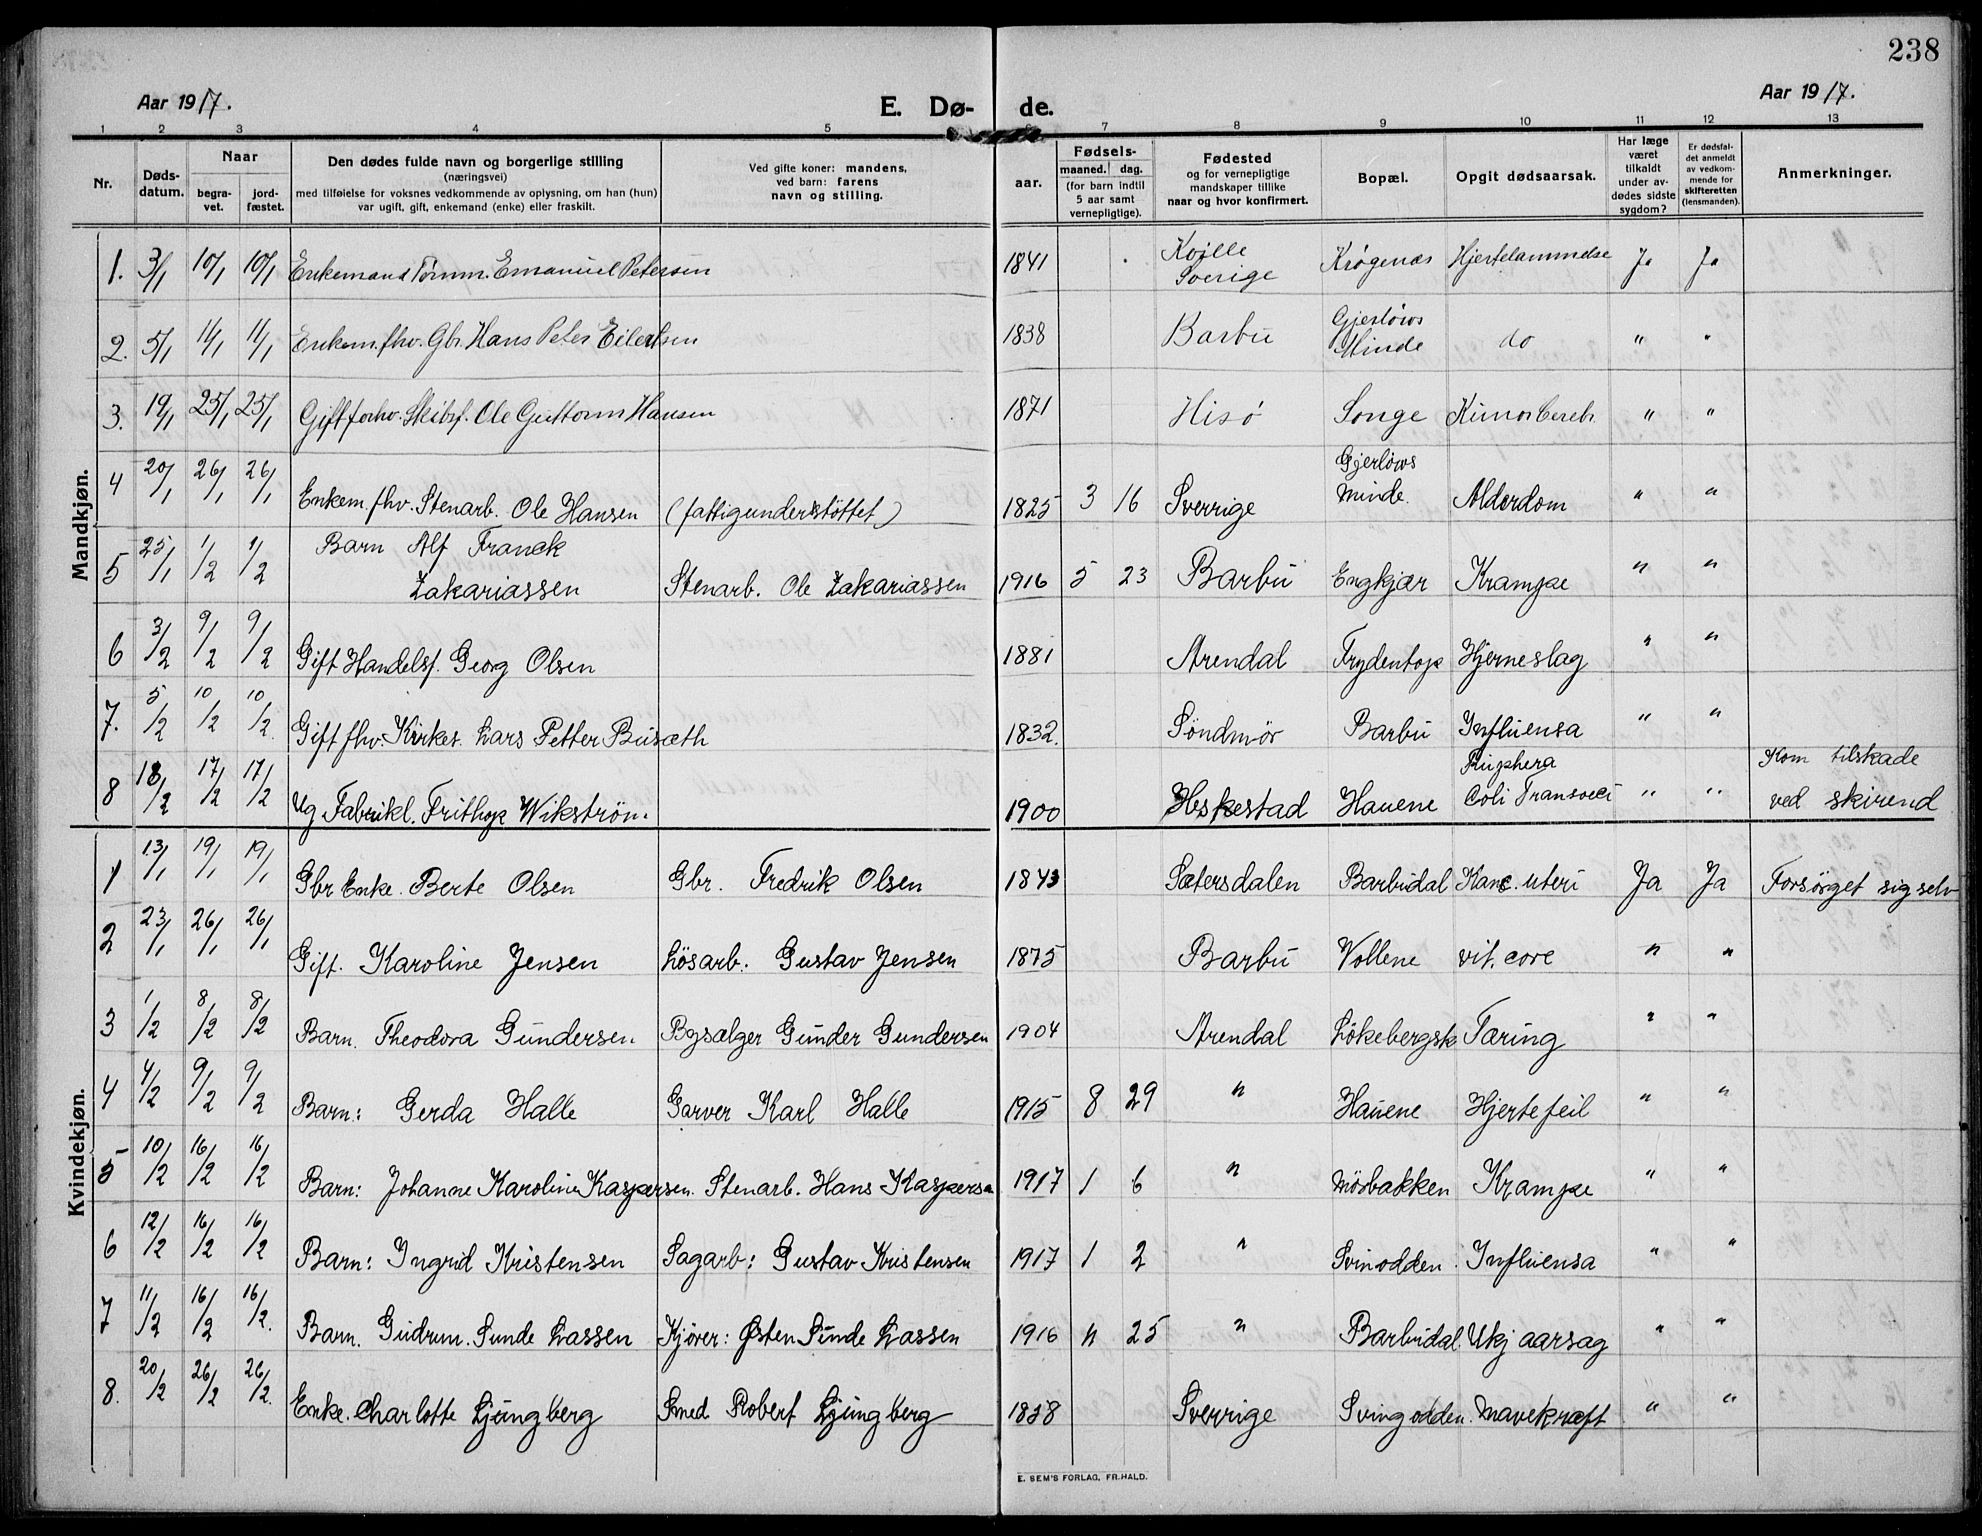 238
Aar 1917.
E. Dø-
de.
Aar 1917.
1 2 3 4 5 6 7 8 9 10 11 12 13
Nr.
Døds-
datum.
Naar
begra-
vet.
jord-
fæstet.
Den dødes fulde navn og borgerlige stilling
(næringsvei)
med tilføielse for voksnes vedkommende av oplysning, om han (hun)
var ugift, gift, enkemand (enke) eller fraskilt.
Ved gifte koner: mandens,
ved barn: farens
navn og stilling.
aar.
Fødsels-
maaned. dag.
(for barn indtil
5 aar samt
vernepligtige).
Fødested
og for vernepligtige
mandskaper tillike
naar og hvor konfirmert.
Bopæl.
Opgit dødsaarsak.
Har læge
været
tilkaldt
under av-
dødes sidste
sygdom?
Er dødsfal-
det anmeldt
av vedkom-
mende for
skifteretten
(lensmanden).
Anmerkninger.
Mandkjøn.
1. 3/1 10/1 10/1 Enkemand Tømm. Emanuel Petersen 1841 Koille Sverige Krøgenæs Hjertelammelse Ja Ja
2. 5/1 11/1 11/1 Enkem. fhv. Gbr. Hans Peter Eilertsen 1838 Barbu Gjerløws Minde do " "
3. 19/1 25/1 25/1 Gift forhv. Skibsf. Ole Guttorm Hansen 1871 Hisø Songe " "
4 20/1 26/1 26/1 Enkem. fhv. Stenarb. Ole Hansen (fattigunderstøttet) 1825 3 16 Sverrige Gjerløws Minde. Alderdom " "
5 25/1 1/2 1/2 Barn Alf Franck Zakariassen Stenarb. Ole Zakariassen 1916 5 23 Barbu Engkjær Krampe " "
6 3/2 9/2 9/2 Gift Handelsf. Georg Olsen 1881 Arendal Frydentop Hjerneslag " "
7. 5/2 10/2 10/2 Gift fhv. Kirkes. Lars Petter Busæth 1832. Søndmør Barbu Influensa " "
8 18/2 17/2 17/2 Ug Fabrikl. Frithop Wikstrøm. 1900 Heskestad Hauene Coli " " Kom tilskade ved skirend
Kvindekjøn.
1 13/1 19/1 19/1 Gbr Enke. Berte Olsen Gbr. Fredrik Olsen 1843 Sætersdalen Barbudal Kanc. uteri Ja Ja Forsørget sig selv
2 23/1 26/1 26/1 Gift. Karoline Jensen Løsarb. Gustav Jensen 1875 Barbu Vollene vit. core " "
3 1/2 8/2 8/2 Barn. Theodora Gundersen Bysælger Gunder Gundersen 1904 Arendal Løkebergsk Tæring " "
4 4/2 9/2 9/2 Barn: Gerda Halle Garver Karl Halle 1915 8 29 " Hauene Hjertefeil " "
5 10/2 16/2 16/2 Barn: Johanne Karoline Kaspersen. Stenarb. Hans Kaspersen 1917 1 6 " Møsbakken Krampe " "
6 12/2 16/2 16/2 Barn: Ingrid Kristensen Sagarb: Gustav Kristensen 1917 1 2 " Svinodden. Influensa " "
7 11/2 16/2 16/2. Barn. Gudrun. Sunde Lassen Kjører: Østen Sunde Lassen 1916 11 25 " Barbudal. Ukj aarsag " "
8. 20/2 26/2 26/2. Enke. Charlotte Ljungberg Smed Robert Ljungberg 1838 Sverrige Svingodden. Mavekræft " "
E. SEM'S FORLAG, FR.HALD.